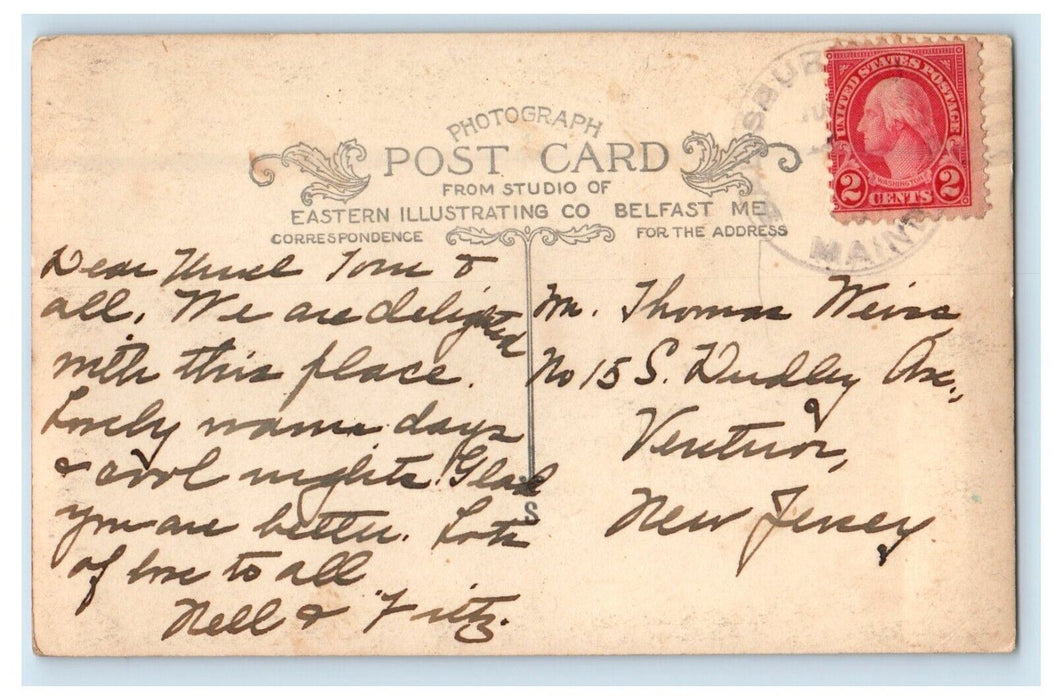 PHOTOGRAPH
POST CARD
FROM STUDIO OF
EASTERN ILLUSTRATING CO BELFAST ME
CORRESPONDENCE
FOR THE ADDRESS
UNITED STATES POSTAGE
WASHINGTON
2 CENTS 2
MAINE
Dear Uncle Tom &
all. We are delighted
with this place.
Lovely warm days
& cool nights. Glad
you are better. Lots
of love to all
Nell & Fritz.
Mr. Thomas Weiss
No 15 S. Dudley Ave.,
Ventnor,
New Jersey
S